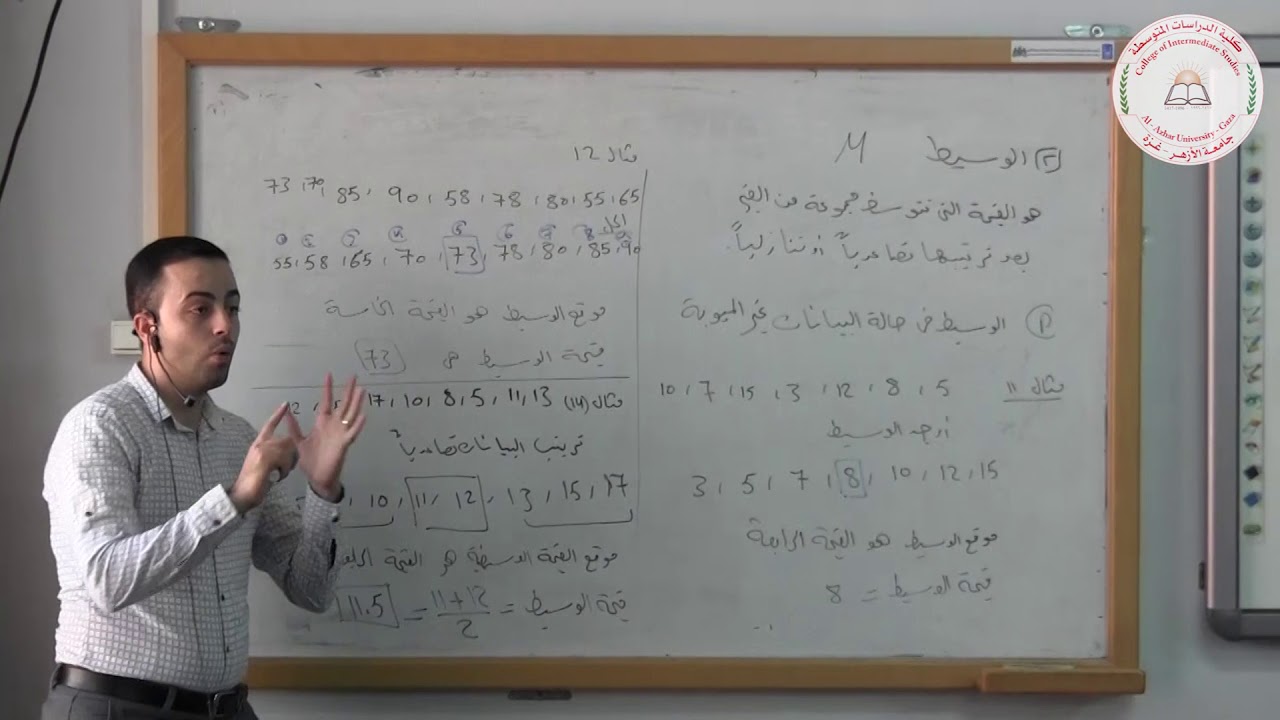 كلية الدراسات المتوسطة
College of Intermediate Studies
Al-Azhar University - Gaza
جامعة الأزهر - غزة
(٢) الوسيط M
هو القيمة التي تتوسط مجموعة من القيم
بعد ترتيبها تصاعدياً أو تنازلياً.
(P) الوسيط في حالة البيانات غير المبوبة
مثال 11
10 , 7 , 15 , 3 , 12 , 8 , 5
أوجد الوسيط
3 , 5 , 7 , 8 , 10 , 12 , 15
موقع الوسيط هو القيمة الرابعة
قيمة الوسيط = 8
مثال 12
73 , 70 , 85 , 90 , 58 , 78 , 80 , 55 , 65
55 , 58 , 65 , 70 , 73 , 78 , 80 , 85 , 90
موقع الوسيط هو القيمة الخامسة
قيمة الوسيط 73
مثال (14) 17 , 10 , 8 , 5 , 11 , 13
ترتيب البيانات تصاعدياً
10 , 11 , 12 , 13 , 15 , 17
موقع القيمة الوسيطية هو القيمة
قيمة الوسيط = 11+12 / 2 = 11.5